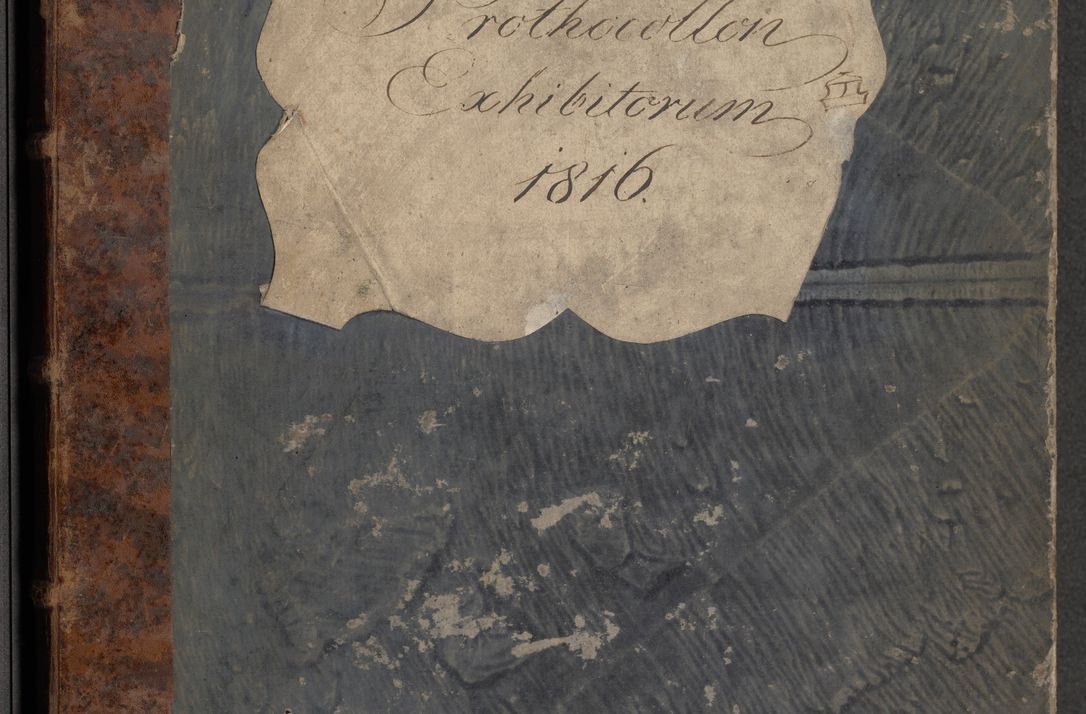 Prothocollon
Exhibitorum
1816.